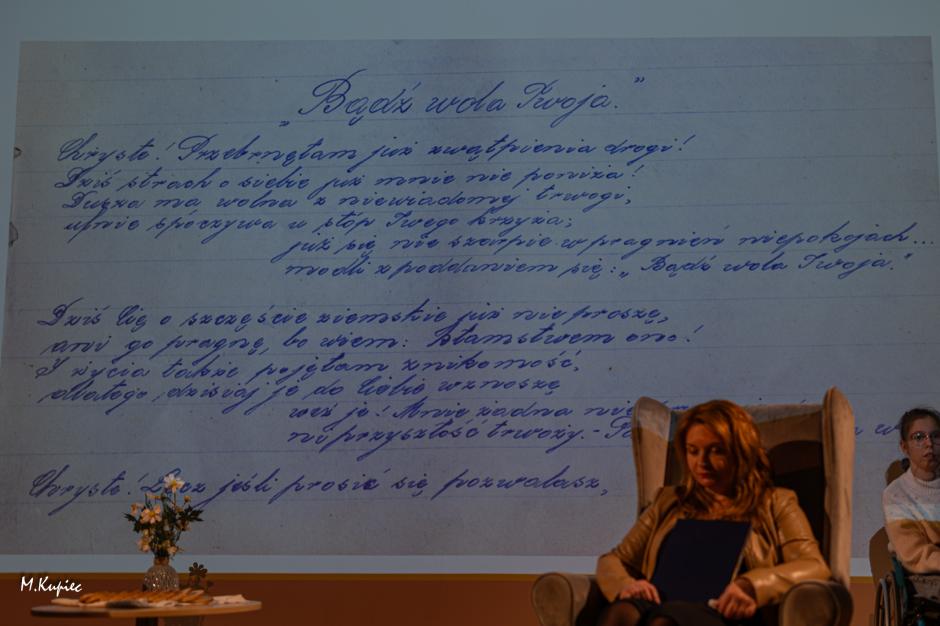 „Bądź wola Twoja."
Chryste! Przebrnęłam już zwątpienia drogi!
Dziś strach o siebie już mnie nie poniża!
Dusza ma wolna z niewiadomej trwogi,
ufnie spoczywa u stóp Twego Krzyża;
już się nie szarpie w pragnień niepokojach...
modli z poddaniem się: „Bądź wola Twoja."
Dziś Cię o szczęście ziemskie już nie proszę,
ani go pragnę, bo wiem: kłamstwem ono!
I życia także pojęłam znikomość,
dlatego dzisiaj je do Ciebie wznoszę
weź je! Mnie żadna
ni przyszłość trwoży. -
Chryste! Lecz jeśli prosić się pozwalasz,
M.Kupiec